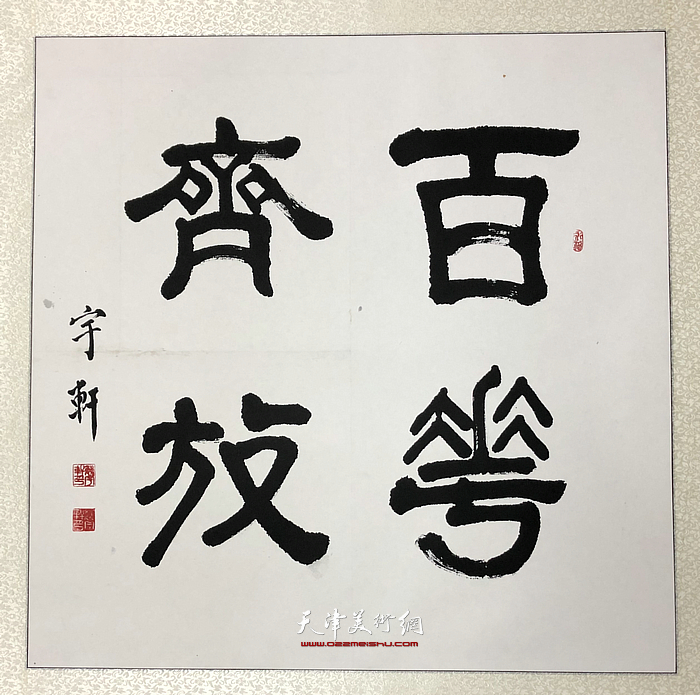 百花
齊放
宇軒
天津美術網
www.022meishu.com